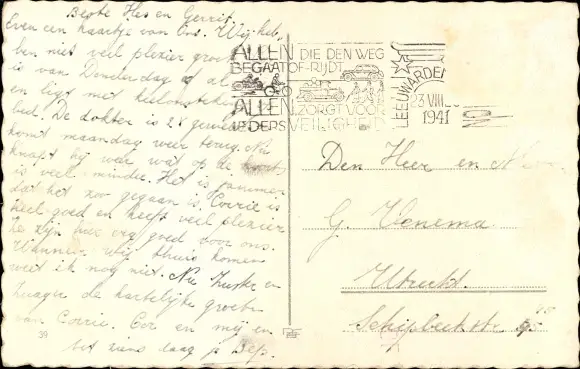 Beste Hes en Gerrit.
Even een kaartje van Ons. Wij heb
ben niet veel plezier
is van Donderdag of al
en ligt met
bed. De dokter is 2x geweest
komt maandag weer terug. Nu
knapt hij weer wat op de
is veel minder. Het is jammer
dat het zoo gegaan is. Corrie is
heel goed en heeft veel plezier
Ze zijn hier erg goed voor ons.
Wanneer wij thuis komen
weet ik nog niet. Nu Zuster en
Zwager de hartelijke groeten
van Corrie. Cor en mij en
tot ziens dag
ALLEN DIE DEN WEG
BEGAAT OF RIJDT
ALLEN ZORGT VOOR
IEDERS VEILIGHEID
LEEUWARDEN
23 VIII
1941
Den Heer en Mevr.
G. Venema
Utrecht.
Schipbeekstr.
39